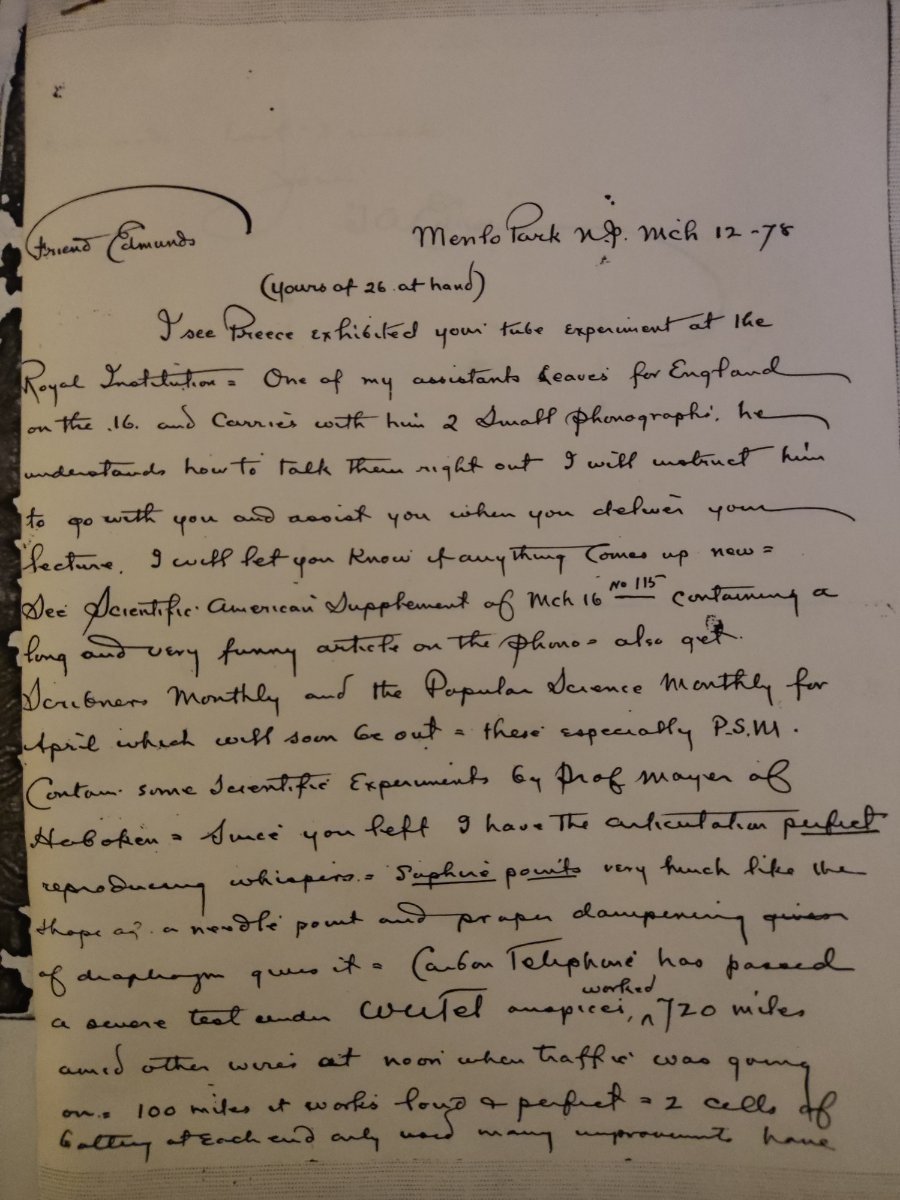 Menlo Park N.J. Mch 12 -78
Friend Edmunds
(Yours of 26 at hand)
I see Preece exhibited your tube experiment at the
Royal Institution = One of my assistants leaves for England
on the .16. and carries with him 2 Small phonographs. he
understands how to talk them right out I will instruct him
to go with you and assist you when you deliver your
lecture. I will let you Know if anything comes up new =
See Scientific American Supplement of Mch 16 No 115 containing a
long and very funny article on the phono = also get
Scribners Monthly and the Popular Science Monthly for
April which will soon be out = these especially P.S.M.
Contain some Scientific Experiments by Prof Mayer of
Hoboken = Since you left I have the articulation perfect
reproducing whispers. = Saphire points very much like the
shape of a needle point and proper dampening given
of diaphragm gives it = Carbon Telephone has passed
a severe test under WUTel auspices, worked 720 miles
amid other wires at noon when traffic was going
on = 100 miles it works loud & perfect = 2 cells of
battery at Each end only used many improvements have